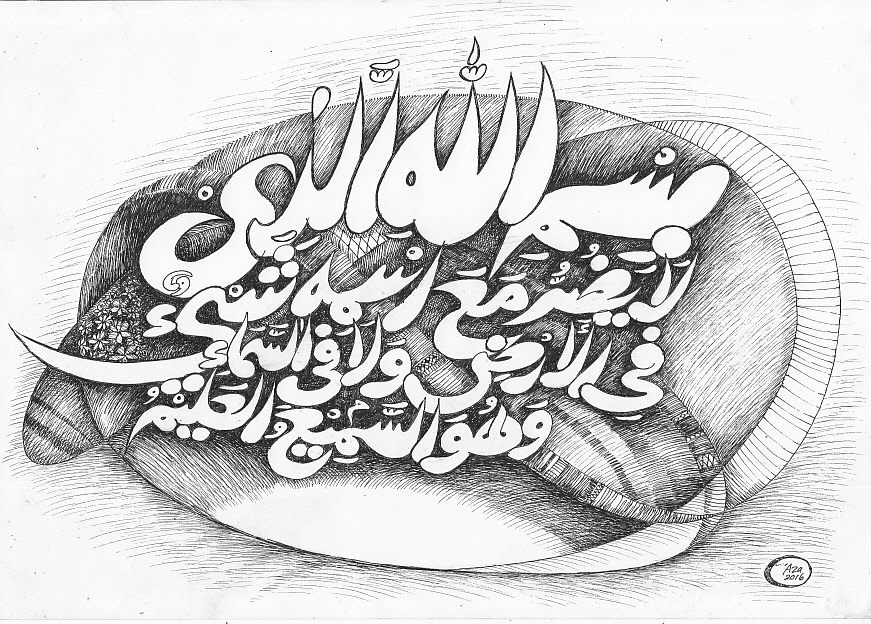 بِسْمِ اللّٰهِ الَّذِي
لَا يَضُرُّ مَعَ اسْمِهِ شَيْءٌ
فِي الْأَرْضِ وَلَا فِي السَّمَاءِ
وَهُوَ السَّمِيْعُ الْعَلِيْمُ
'Aza
2016